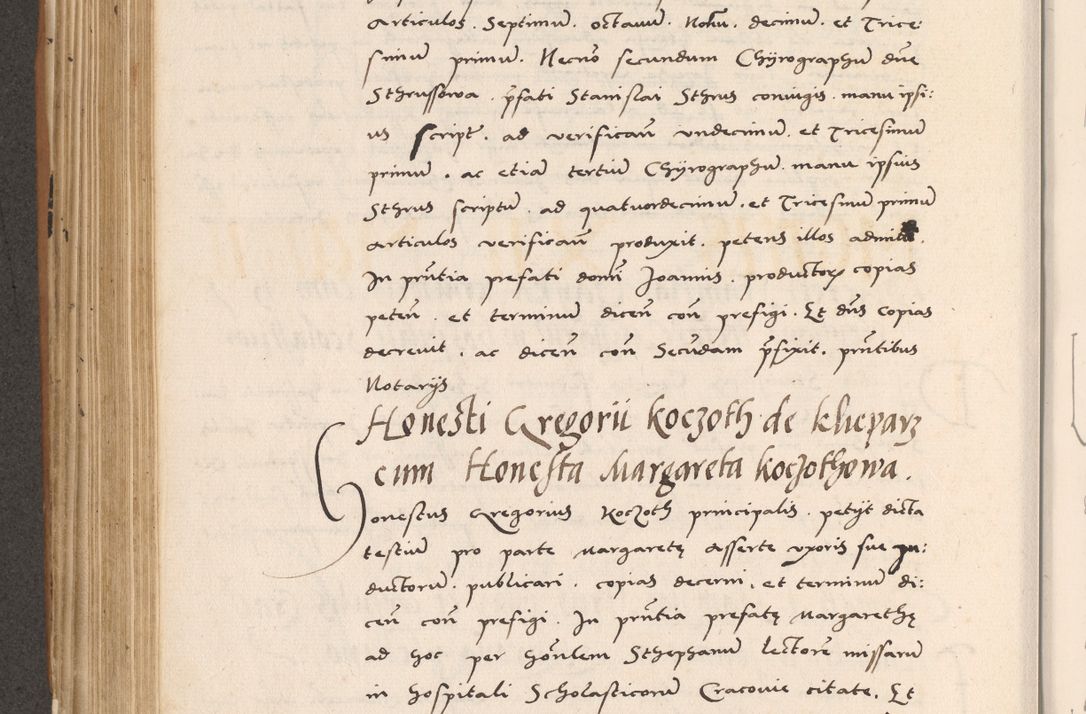 articulos. Septimū. octauū. Nonū. decimū. et Trice:
simū primū. Necnō secundum Chÿrographū dn̄e
Sthrussowa. p̄fati Stanislai Sthrus coniugis. manu ipsi:
us script. ad verifican̄ vndecimū. et Tricesimū
primū. ac etiā tertiū Chÿrographū. manu ipsius
Sthrus scriptū. ad quatuordecimū. et Tricesimū primū
articulos verifican̄ produxit. petens illos admitti.
In pn̄tia prefati domī Joannis. productorꝝ copias
peten̄. et terminū dicen̄ con̄ prefigi. Et dn̄s copias
decreuit. ac dicen̄ con̄ Secūdam p̄fixit. pn̄tibus
Notarijs
Honesti Gregorii Koczoth de Klieparz
cum Honesta Margareta Koczothowa.
Honestus Gregorius Koczoth principalis. petijt dicta
testiū pro parte Margaretę asserte vxoris sue in:
ductorū. publicari. copias decerni. et terminū di:
cen̄ con̄ prefigi. In pn̄tia prefatę Margarethę
ad hoc per hon̄lem Sthephanū lectorē missarū
in hospitali Scholasticorū Cracouie citate. Et